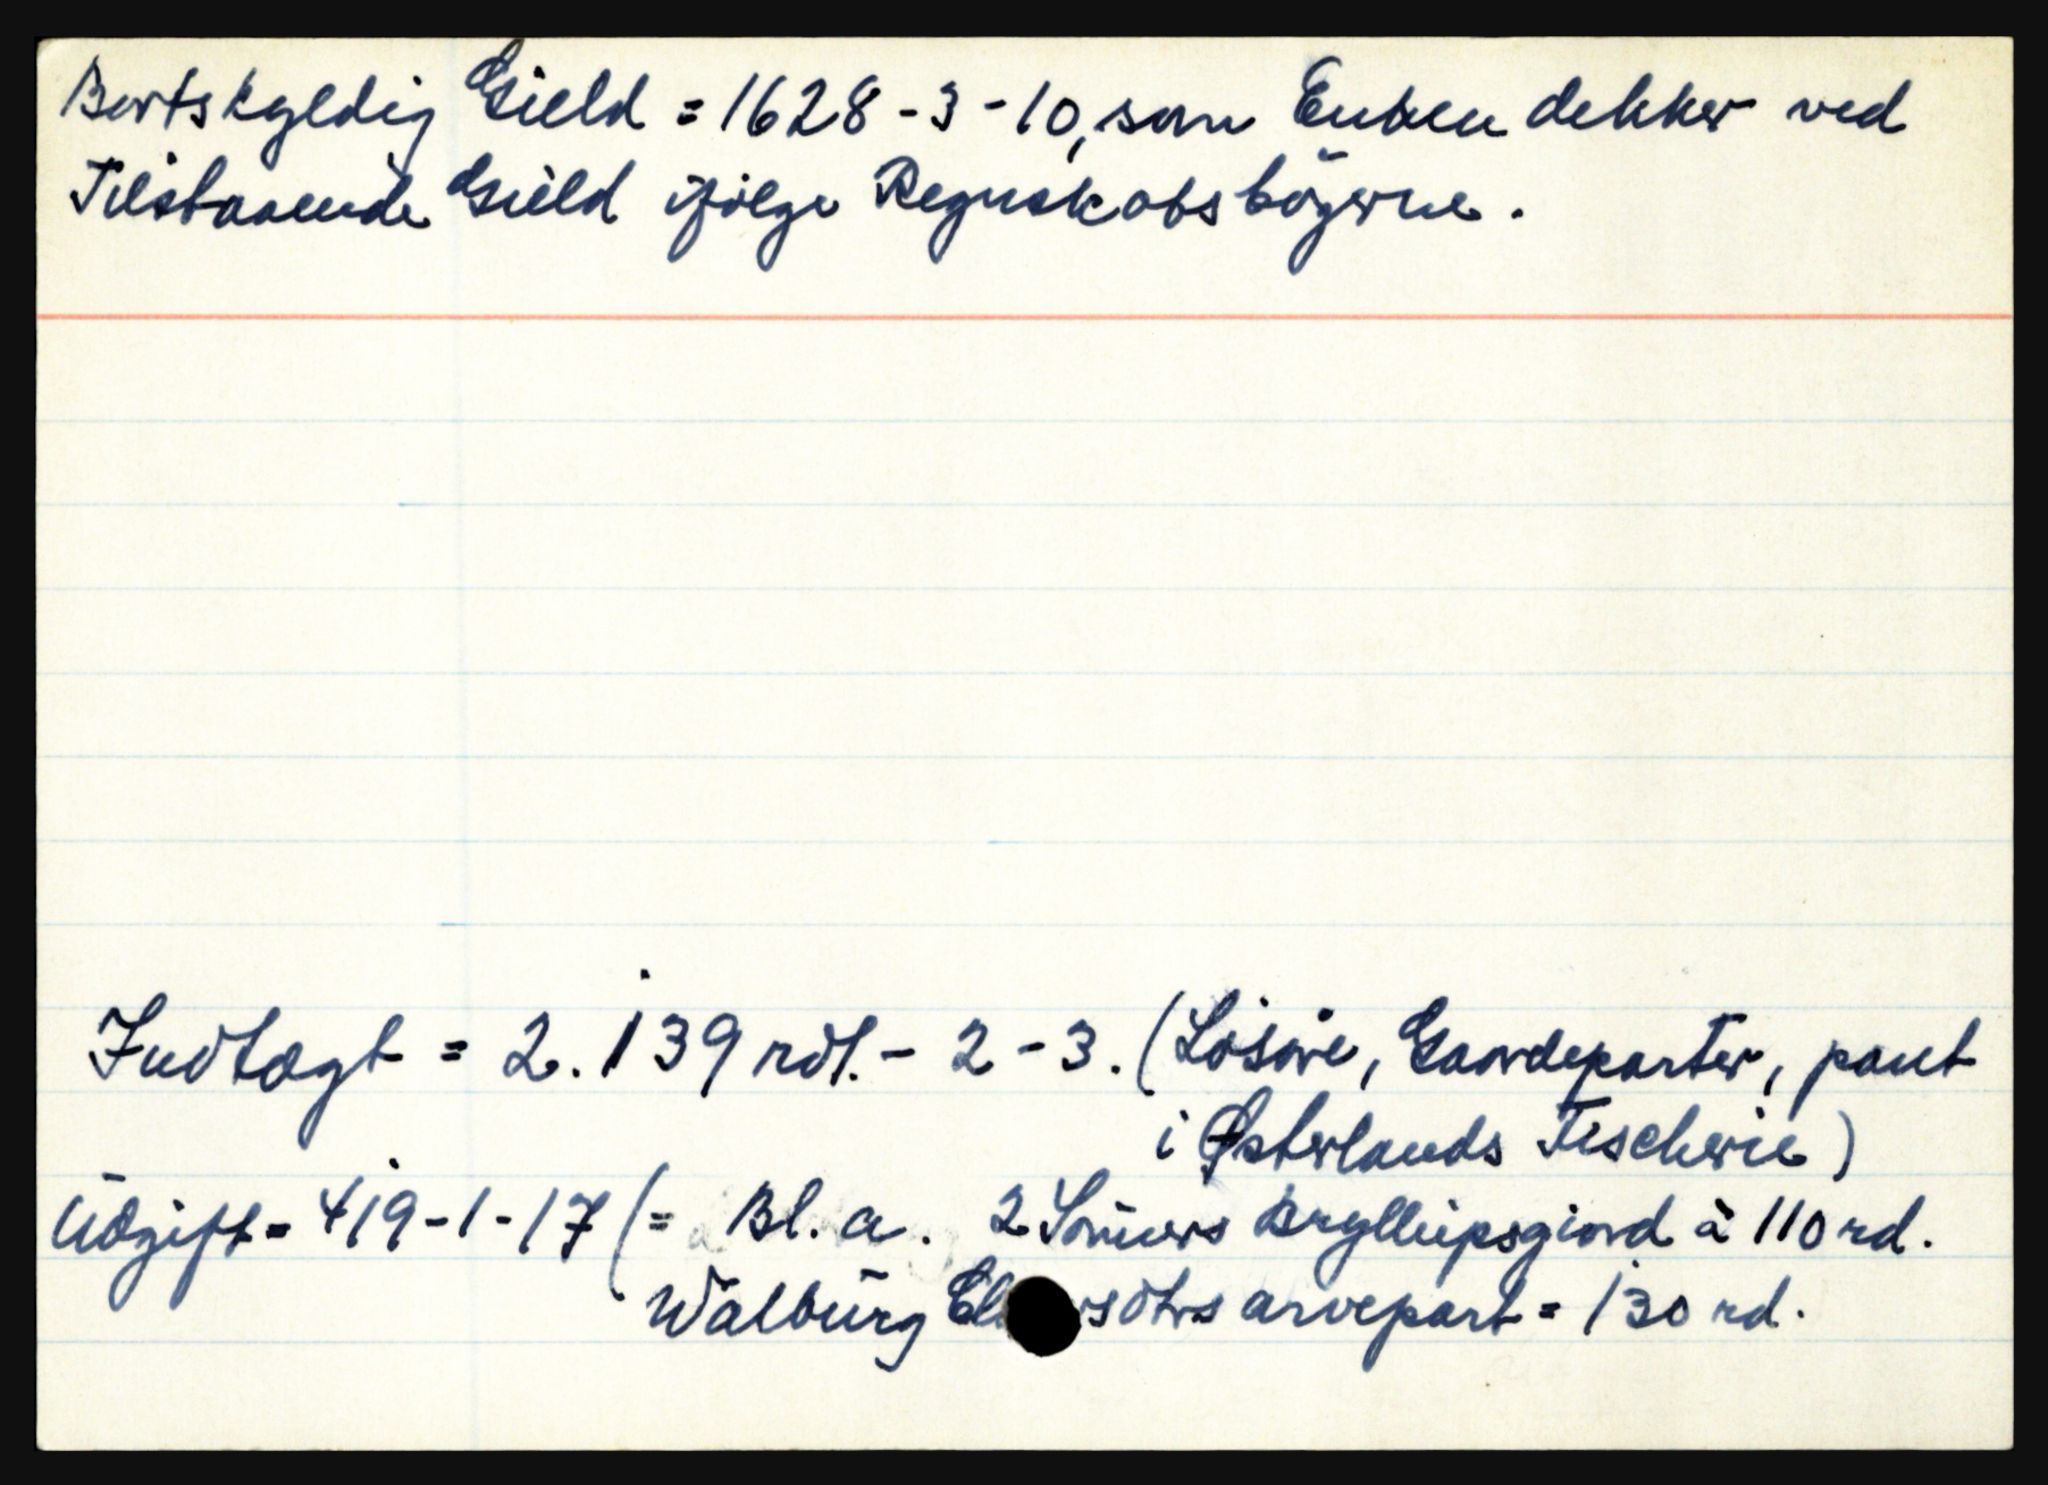 Bortskyldig Gield = 1628-3-10, som Enken dekker ved
Tilstaaende Gield ifølge Regnskabsbøgerne.
Indtægt = 2.139 rdl. - 2 - 3. (Løsøre, Gaardeparter, pant
i Østerlands Fischerie)
Udgift = 419-1-17 (= Bl. a. 2 Sønners Bryllupsgiord à 110 rd.
Walburg arvepart = 130 rd.